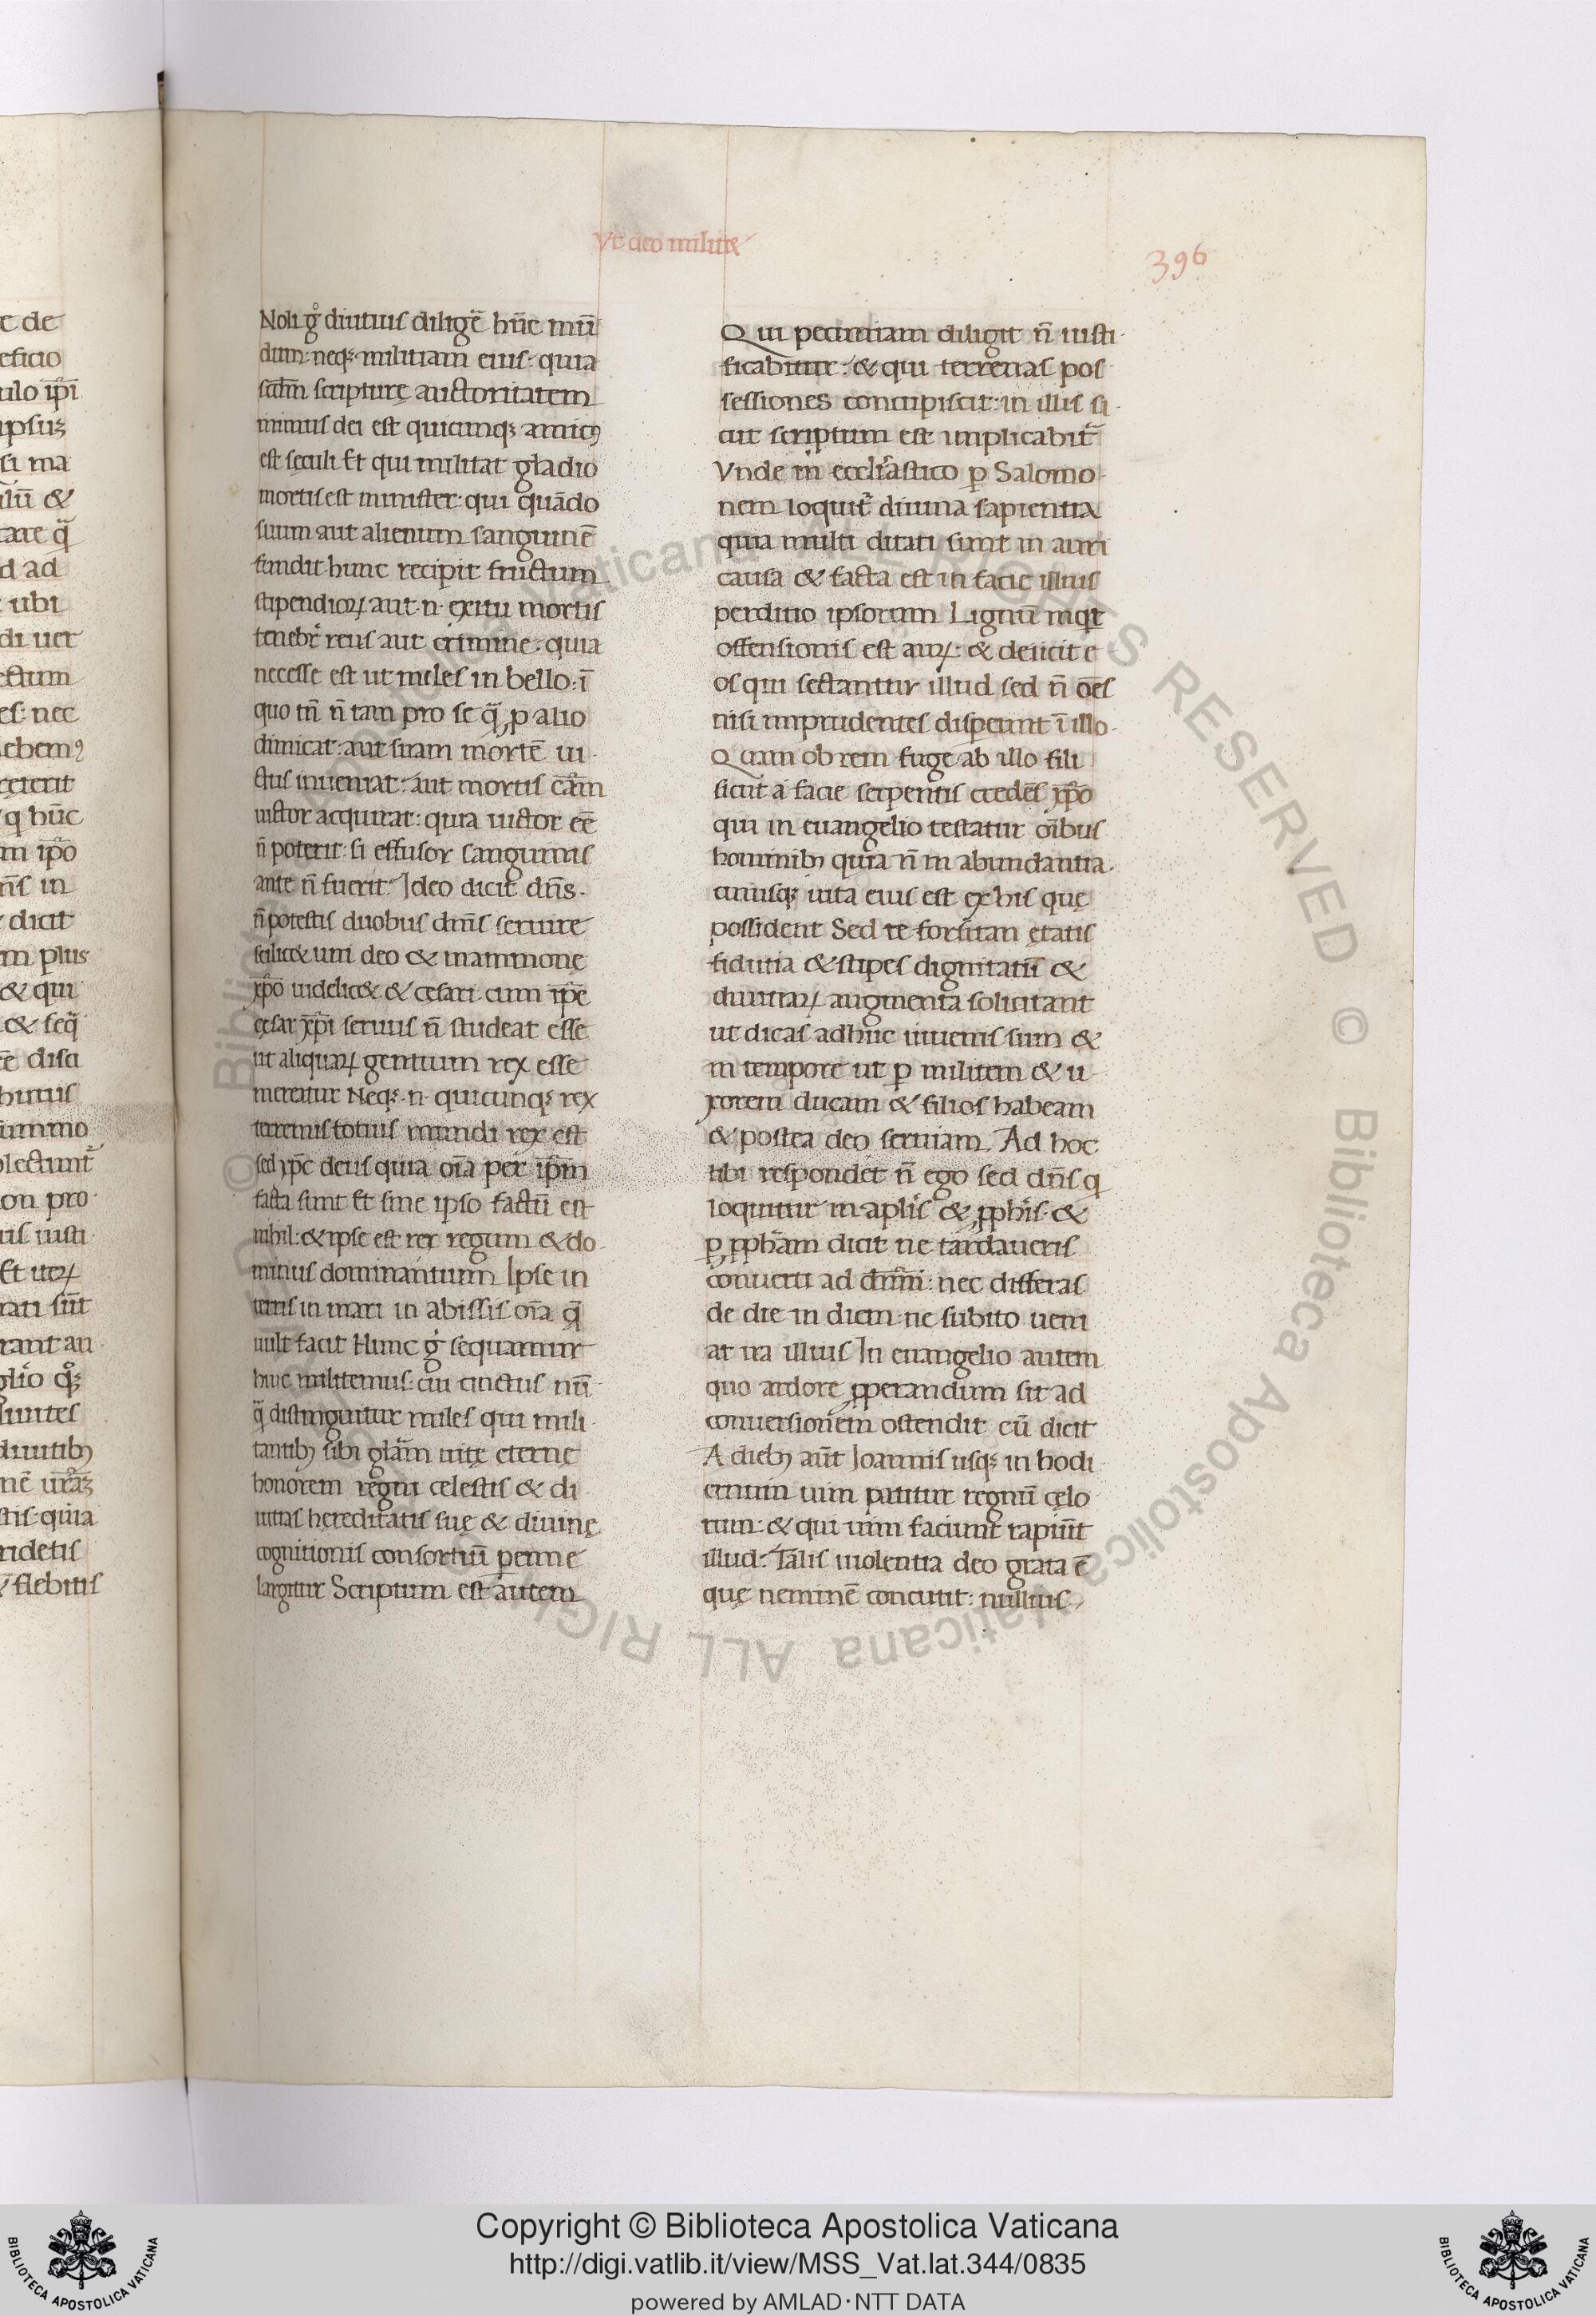 Vt deo milite&
396
Noli gͦ diutius diligē hūc mū
dum: neqꝫ militiam eius: quia
scd̄m scripturę auctoritatem
inimicus dei est quicunqꝫ amicꝰ
est seculi Et qui militat gladio
mortis est minister: qui quādo
suum aut alienum sanguinē
fundit hunc recipit fructum
stipendioꝝ aut .n. exitu mortis
tenebr̄ reus aut crimine: quia
necesse est ut miles in bello: ī
quo tn̄ n̄ tam pro se q̄ ꝓ alio
dimicat: aut suam mortē ui
ctus inueniat: aut mortis cām
uictor acquirat: quia uictor eē
n̄ poterit: si effusor sanguinis
ante n̄ fuerit: Ideo dicit dn̄s.
n̄ potestis duobus dn̄is seruire
scilic& uni deo & mammonę
xp̄o uidelic& & cesari. cum ip̄e
cęsar xp̄i seruus n̄ studeat esse
ut aliquaꝝ gentium rex esse
mereatur Neqꝫ .n. quicunqꝫ rex
terrenus totius mundi rex est
sed xp̄c deus quia oīa per ip̄m
facta sunt Et sine ipso factū est
nihil: & ipse est rex regum & do
minus dominantium Ipse in
terris in mari in abissis oīa q̄
uult facit Hunc gͦ sequamur
huic militemus: cui cinctus nū
q̄ distinguitur miles qui mili
tantibꝫ sibi glām uitę eternę
honorem regni celestis & di
uitias hereditatis suę & diuinę
cognitionis consortiū perrne
largitur Scriptum est autem
Qui pecuniam diligit n̄ iusti
ficabitur: & qui terrenas pos
sessiones concupiscit: in illis si
cut scriptum est implicabit᷑
Vnde in eccli᷑astico ꝑ Salomo
nem loquit᷑ diuina sapientia
quia multi ditati sunt in auri
causa & facta est in facie illius
perditio ipsorum Lignū inqͥt
offensionis est auꝝ: & deiicit e
os qui sectantur illud sed n̄ oēs
nisi imprudentes dispereunt ī illo
Quam ob rem fuge ab illo fili
sicut a facie serpentis credēs xp̄o
qui in euangelio testatur oībus
hominibꝫ quia n̄ in abundantia
cuiusqꝫ uita eius est ex his quę
possident Sed te forsitan ętatis
fidutia & stipes dignitatū &
diuitiaꝝ augmenta solicitant
ut dicas adhuc iuuenis sum &
in tempore ut ꝑ militem & u
xorem ducam & filios habeam
& postea deo seruiam Ad hoc
tibi respondet n̄ ego sed dn̄s q
loquitur in aplis & ꝓphis &
ꝑ ꝓpham dicit ne tardaueris
conuerti ad dn̄m: nec differas
de die in diem: ne subito ueni
at ira illius In euangelio autem
quo ardore ꝓperandum sit ad
conuersionem ostendit cū dicit
A diebꝫ aūt Ioannis usqꝫ in hodi
ernum uim patitur regnū cęlo
rum: & qui uim faciunt rapiūt
illud: Talis uiolentia deo grata ē
quę neminē concutit: nullius
Copyright © Biblioteca Apostolica Vaticana
http://digi.vatlib.it/view/MSS_Vat.lat.344/0835
powered by AMLAD·NTT DATA